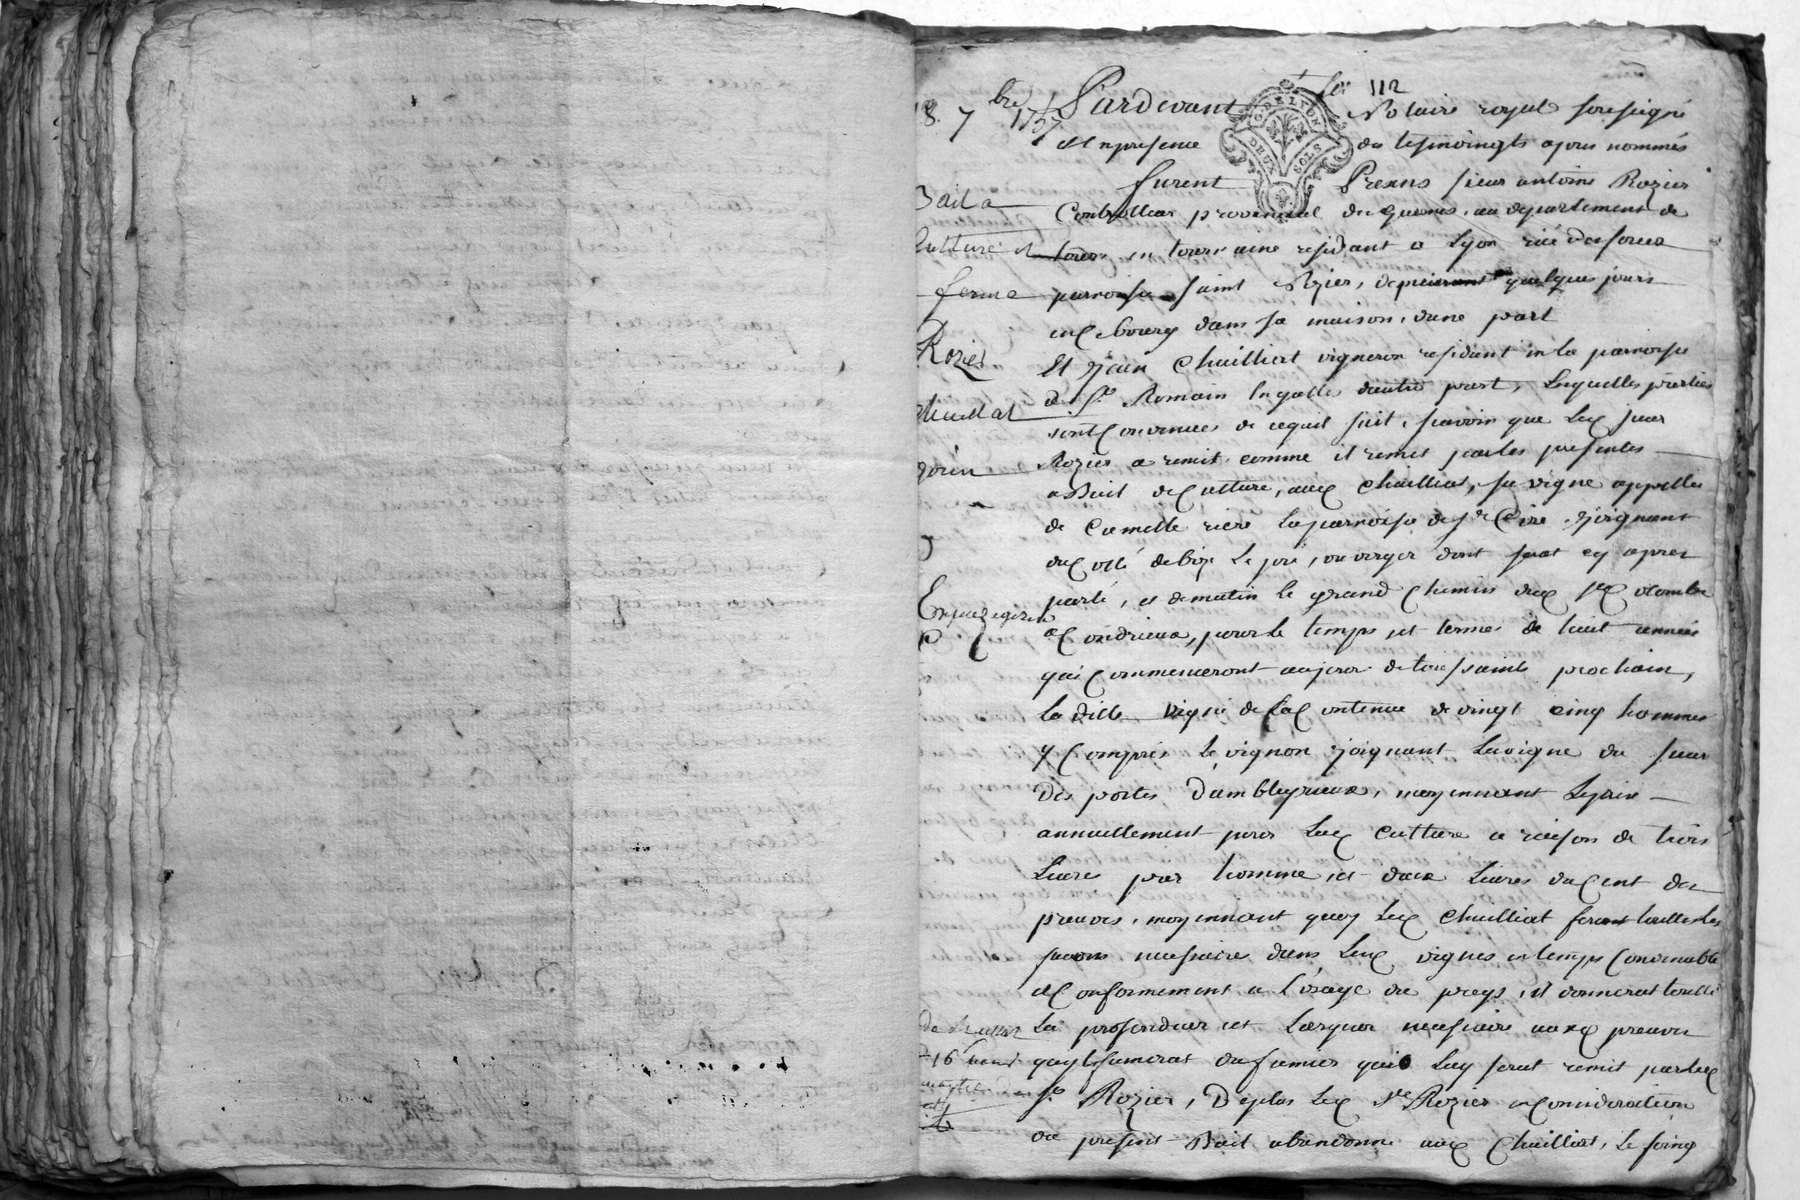 fo. 112
8. 7bre 1757
Pardevant Notaire royal sousigné
et en presence des tesmoingts apres nommés
furent Presens sieur antoine Rozier
Controlleur provincial des guerres, au departement de
residant a Lyon rüe
parroisse saint Nizier, depuis quelques jours
en ce bourg dans sa maison, dune part
Et Jean Chuilliat vigneron residant en la parroisse
de St. Romain en galles dautre part, Lesquelles parties
sont Convenues de ce quil suit, sçavoir que Led. sieur
Rozier a remit comme il remet par les presentes
a Bail de Culture, aud. Chuilliat, sa vigne appellée
de Camelle riere la parroisse de St. Cire, Joignant
du Coté de bize Le pré, ou verger dont serat cy apres
parlé, et de matin le grand Chemin dud. Ste. Colombe
a Condrieux, pour le temps et terme de huit années
qui Commenceront au jour de toussaints prochain,
la ditte vigne de la Contenue de vingt cinq hommes
y Compris le vignon joignant la vigne du sieur
Des portes D'ambleyrieux, moyennant le prix
annuellement pour Lad. Culture a raison de trois
Livres par homme, et deux Livres du Cent des
preuves, moyennant quoy Led. Chuilliat ferat touttes les
façons necessaire dans Lad. vignes en temps Convenable
et Conformement a L'usage du pays, et donnerat toutte
La profondeur et Largeur necessaire auxd. preuves
quil fumerat du fumier qui Luy serat remit par led.
Sr. Rozier, De plus Led. Sr. Rozier en Consideration
du present Bail abandonne aud. Chuilliat, le foing
Bail a
Culture et
ferme
Rozier
Chuilliat